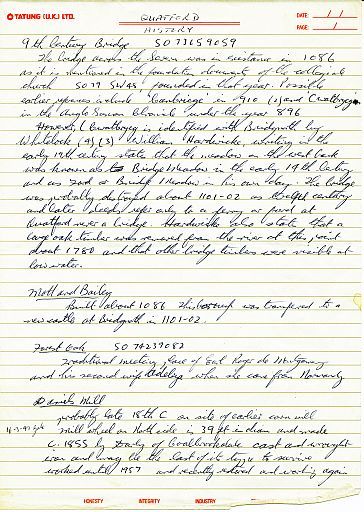 TATUNG (U.K.) LTD.
DATE: / /
PAGE: /
QUATFORD
HISTORY
9th Century Bridge SO73659059
The bridge across the Severn was in existence in 1086
as it is mentioned in the foundation document of the collegiate
church SO79 SW45, founded in that year. Possible
earlier references include Cwatbrycge in 910 (1) and Cwatbrycge
in the Anglo Saxon Chronicle under the year 896
However, Cwatbrycge is identified with Bridgnorth by
Whitelock (4) (3) William Hardwicke, writing in the
early 19th century states that the meadow on the west bank
was known as to Bridge Meadow in the early 19th Century
and as Ford or Bridge Meadow in his own day. The bridge
was probably destroyed about 1101-02 as twelfth century
and later deeds refer only to a ferry or ford at
Quatford never a bridge. Hardwicke also states that a
large oak timber was removed from the river at this point
about 1780 and that other bridge timbers were visible at
low water.
Mott and Bailey
Built about 1086 This borough was transferred to a
new castle at Bridgnorth in 1101-02.
Forest Oak SO 74239082
Traditional meeting place of Earl Roger de Montgomery
and his second wife Adelaza when she came from Normandy
Daniels Mill
probably late 18th C on site of earlier corn mill
Mill wheel on North side is 39ft in diam and made
C.1855 by Darby of Coalbrookdale cast and wrought
iron and may be the last of its type to survive
worked until 1957 and recently restored and working again
HONESTY INTEGRITY INDUSTRY